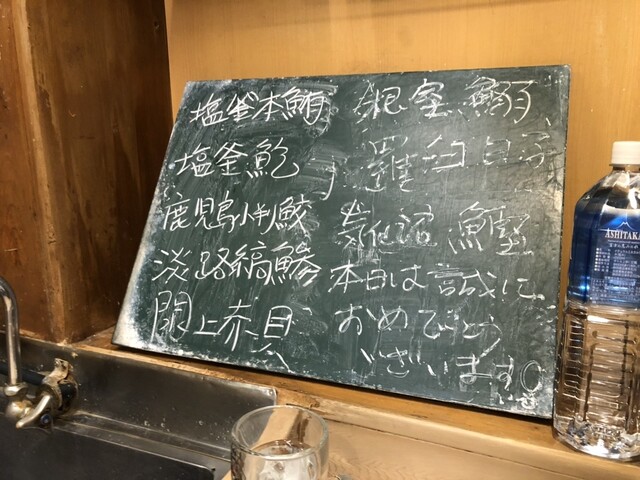 塩釜本鮪
塩釜鮑
鹿児島
淡路縞鯵
閖上赤貝
根室鰯
羅臼白子
気仙沼鰹
本日は誠に
おめでとう
ございます。
ASHITAKA